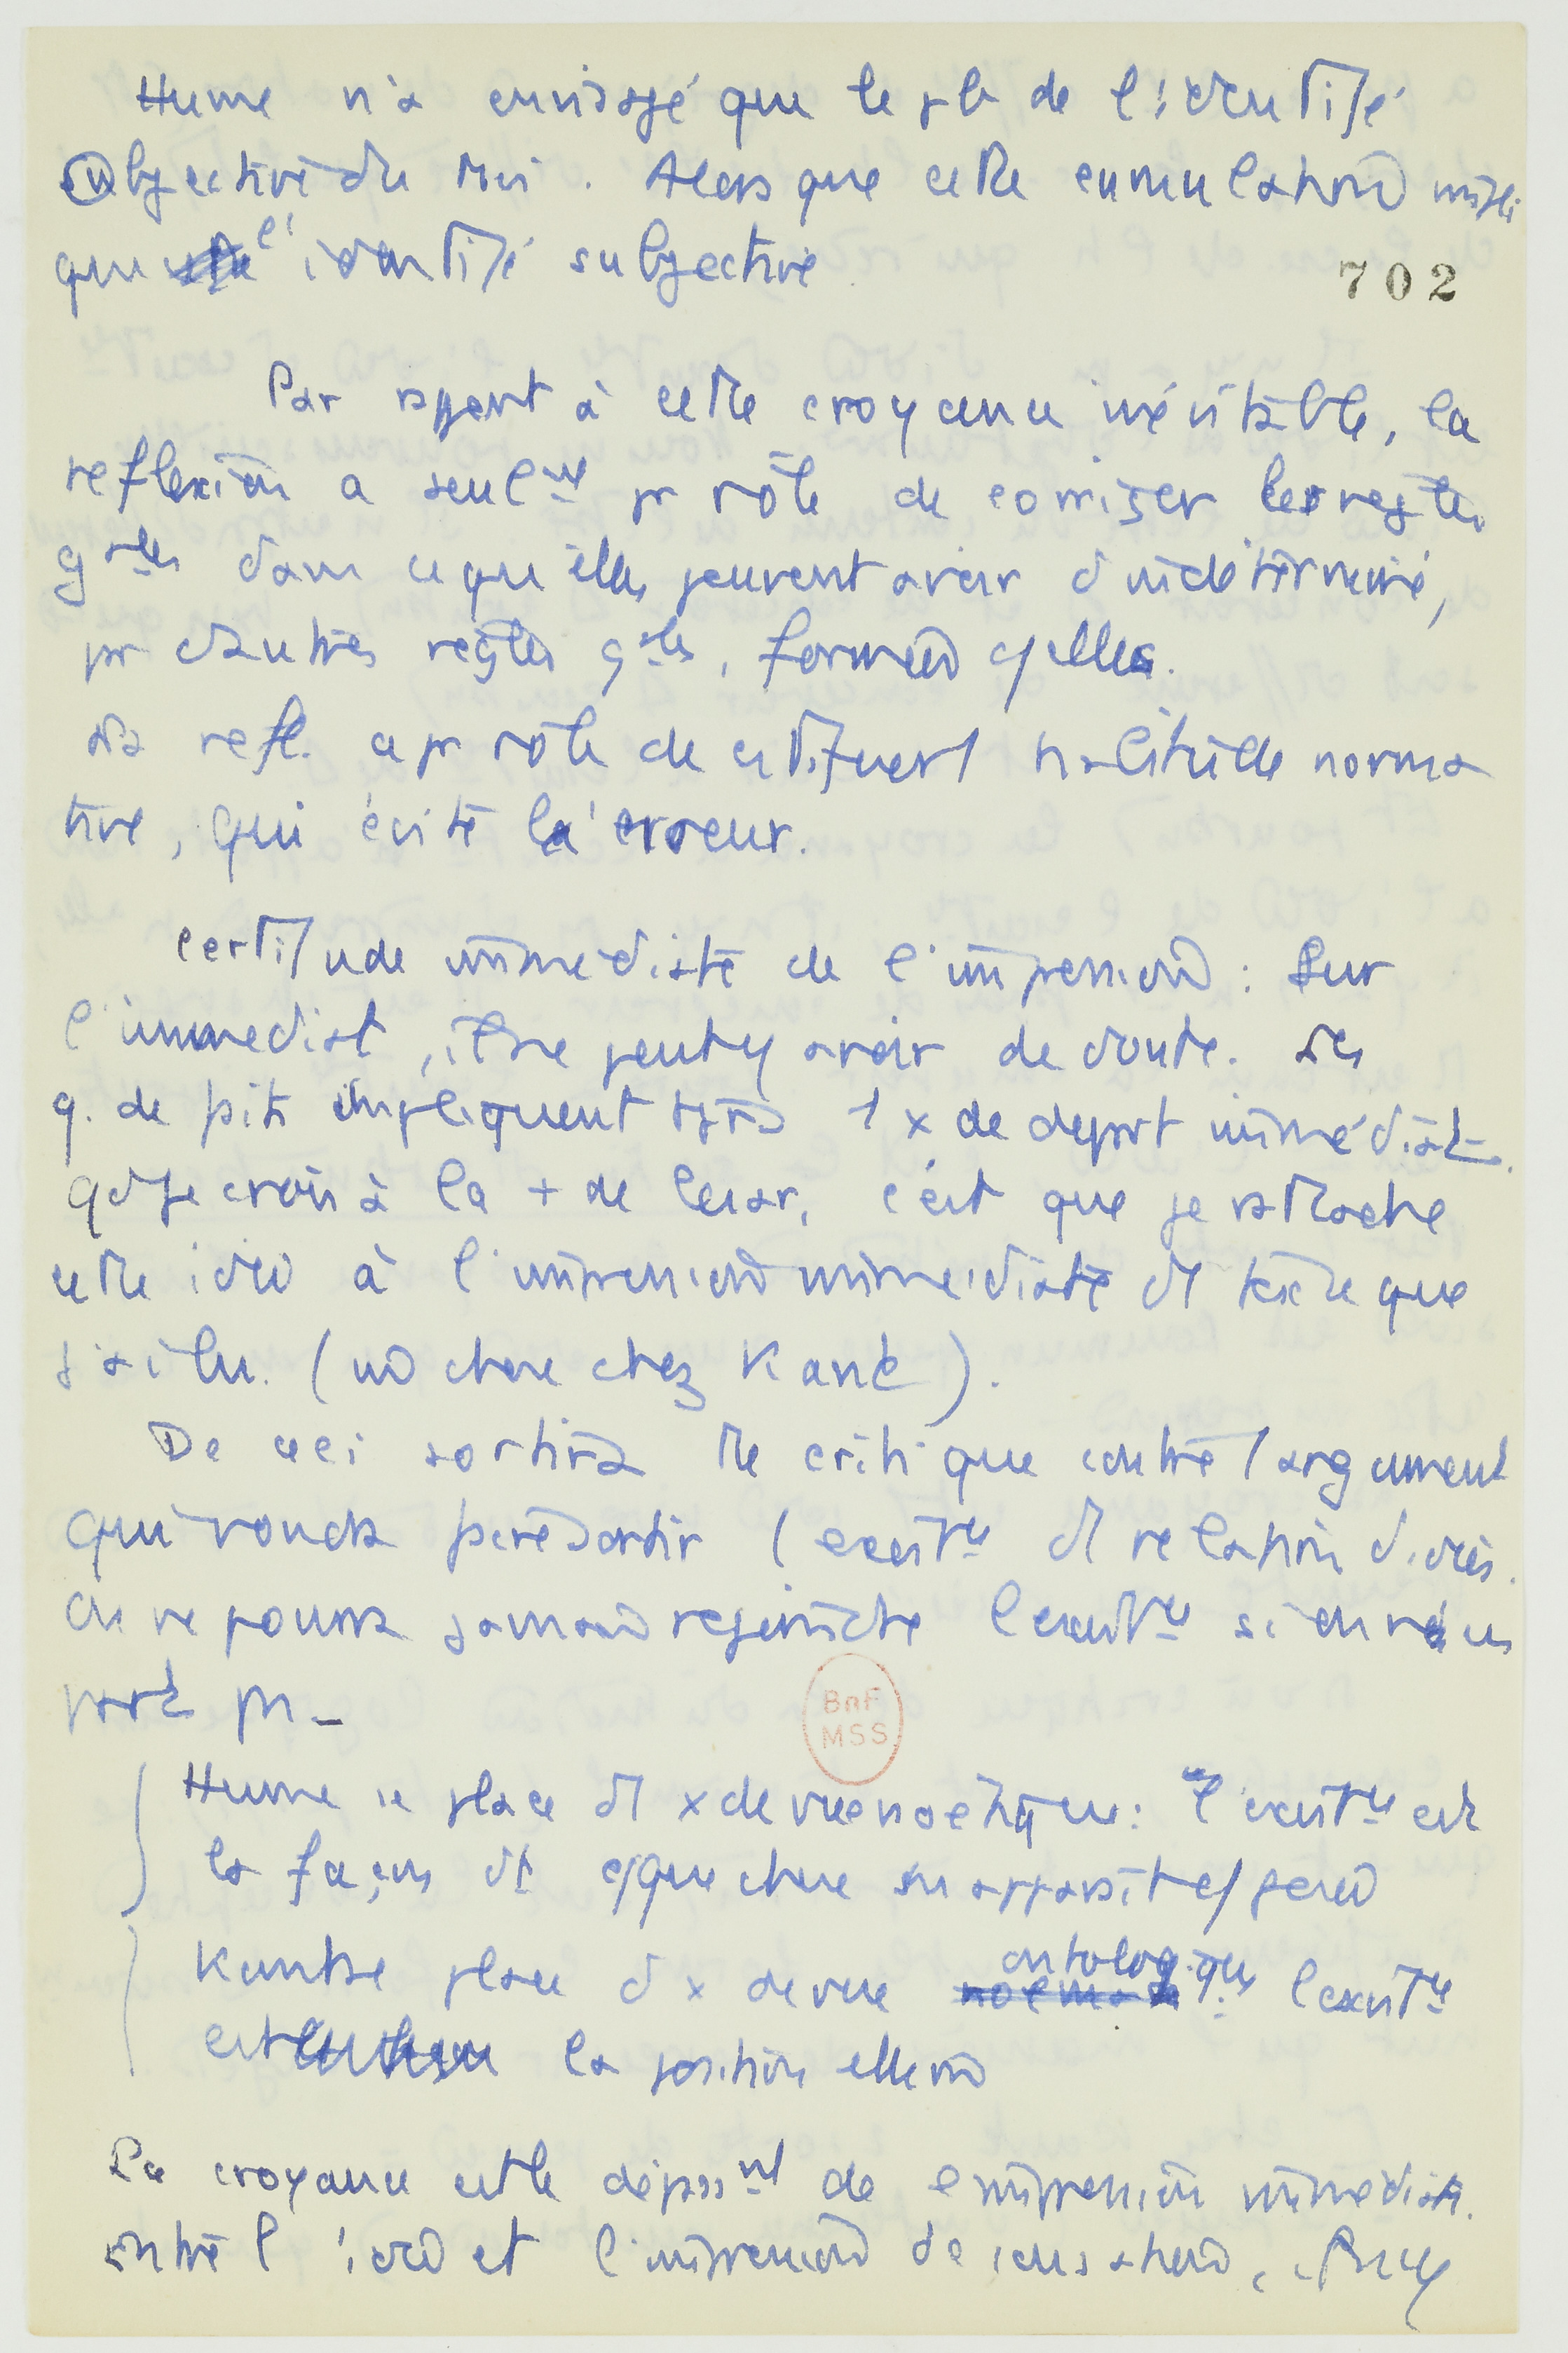 Hume n'a envisagé que le pb de l'identité
objective du Moi. Alors que cette cumulation impli
que l'identité subjective
702
Par rapport à cette croyance inévitable, la
reflexion a seulmt pr rôle de corriger les regles
gales dans ce qu'elles peuvent avoir d'indéterminé,
pr d'autres regles gales, formées
La refl. a pr rôle de 1 habitude norma
tive, qui évite l'erreur.
Certitude immediate de l'impression : Sur
l'immediat, il ne peut y avoir de doute. Les
q. de pbté impliquent tjrs 1 x de depart immédiat.
qd je crois à la + de Cesar, c'est que je rattache
cette idée à l'impression immediate du texte que
j'ai lu. (m chose chez Kant).
De ceci sortira tte critique contre l'argument
qui voudra faire sortir l'existce d'1 relation d'idées.
On ne pourra jamais rejoindre l'existce si on n'en
part pas
Hume se place d'1 x de vue noétique : l'existce est
la façon dt qque chose apparait
Kant se place d x de vue ontologique l'existce
est la position elle m
La croyance est le depassmt de l'impression immediate.
entre l'idée et l'impression de sensation,